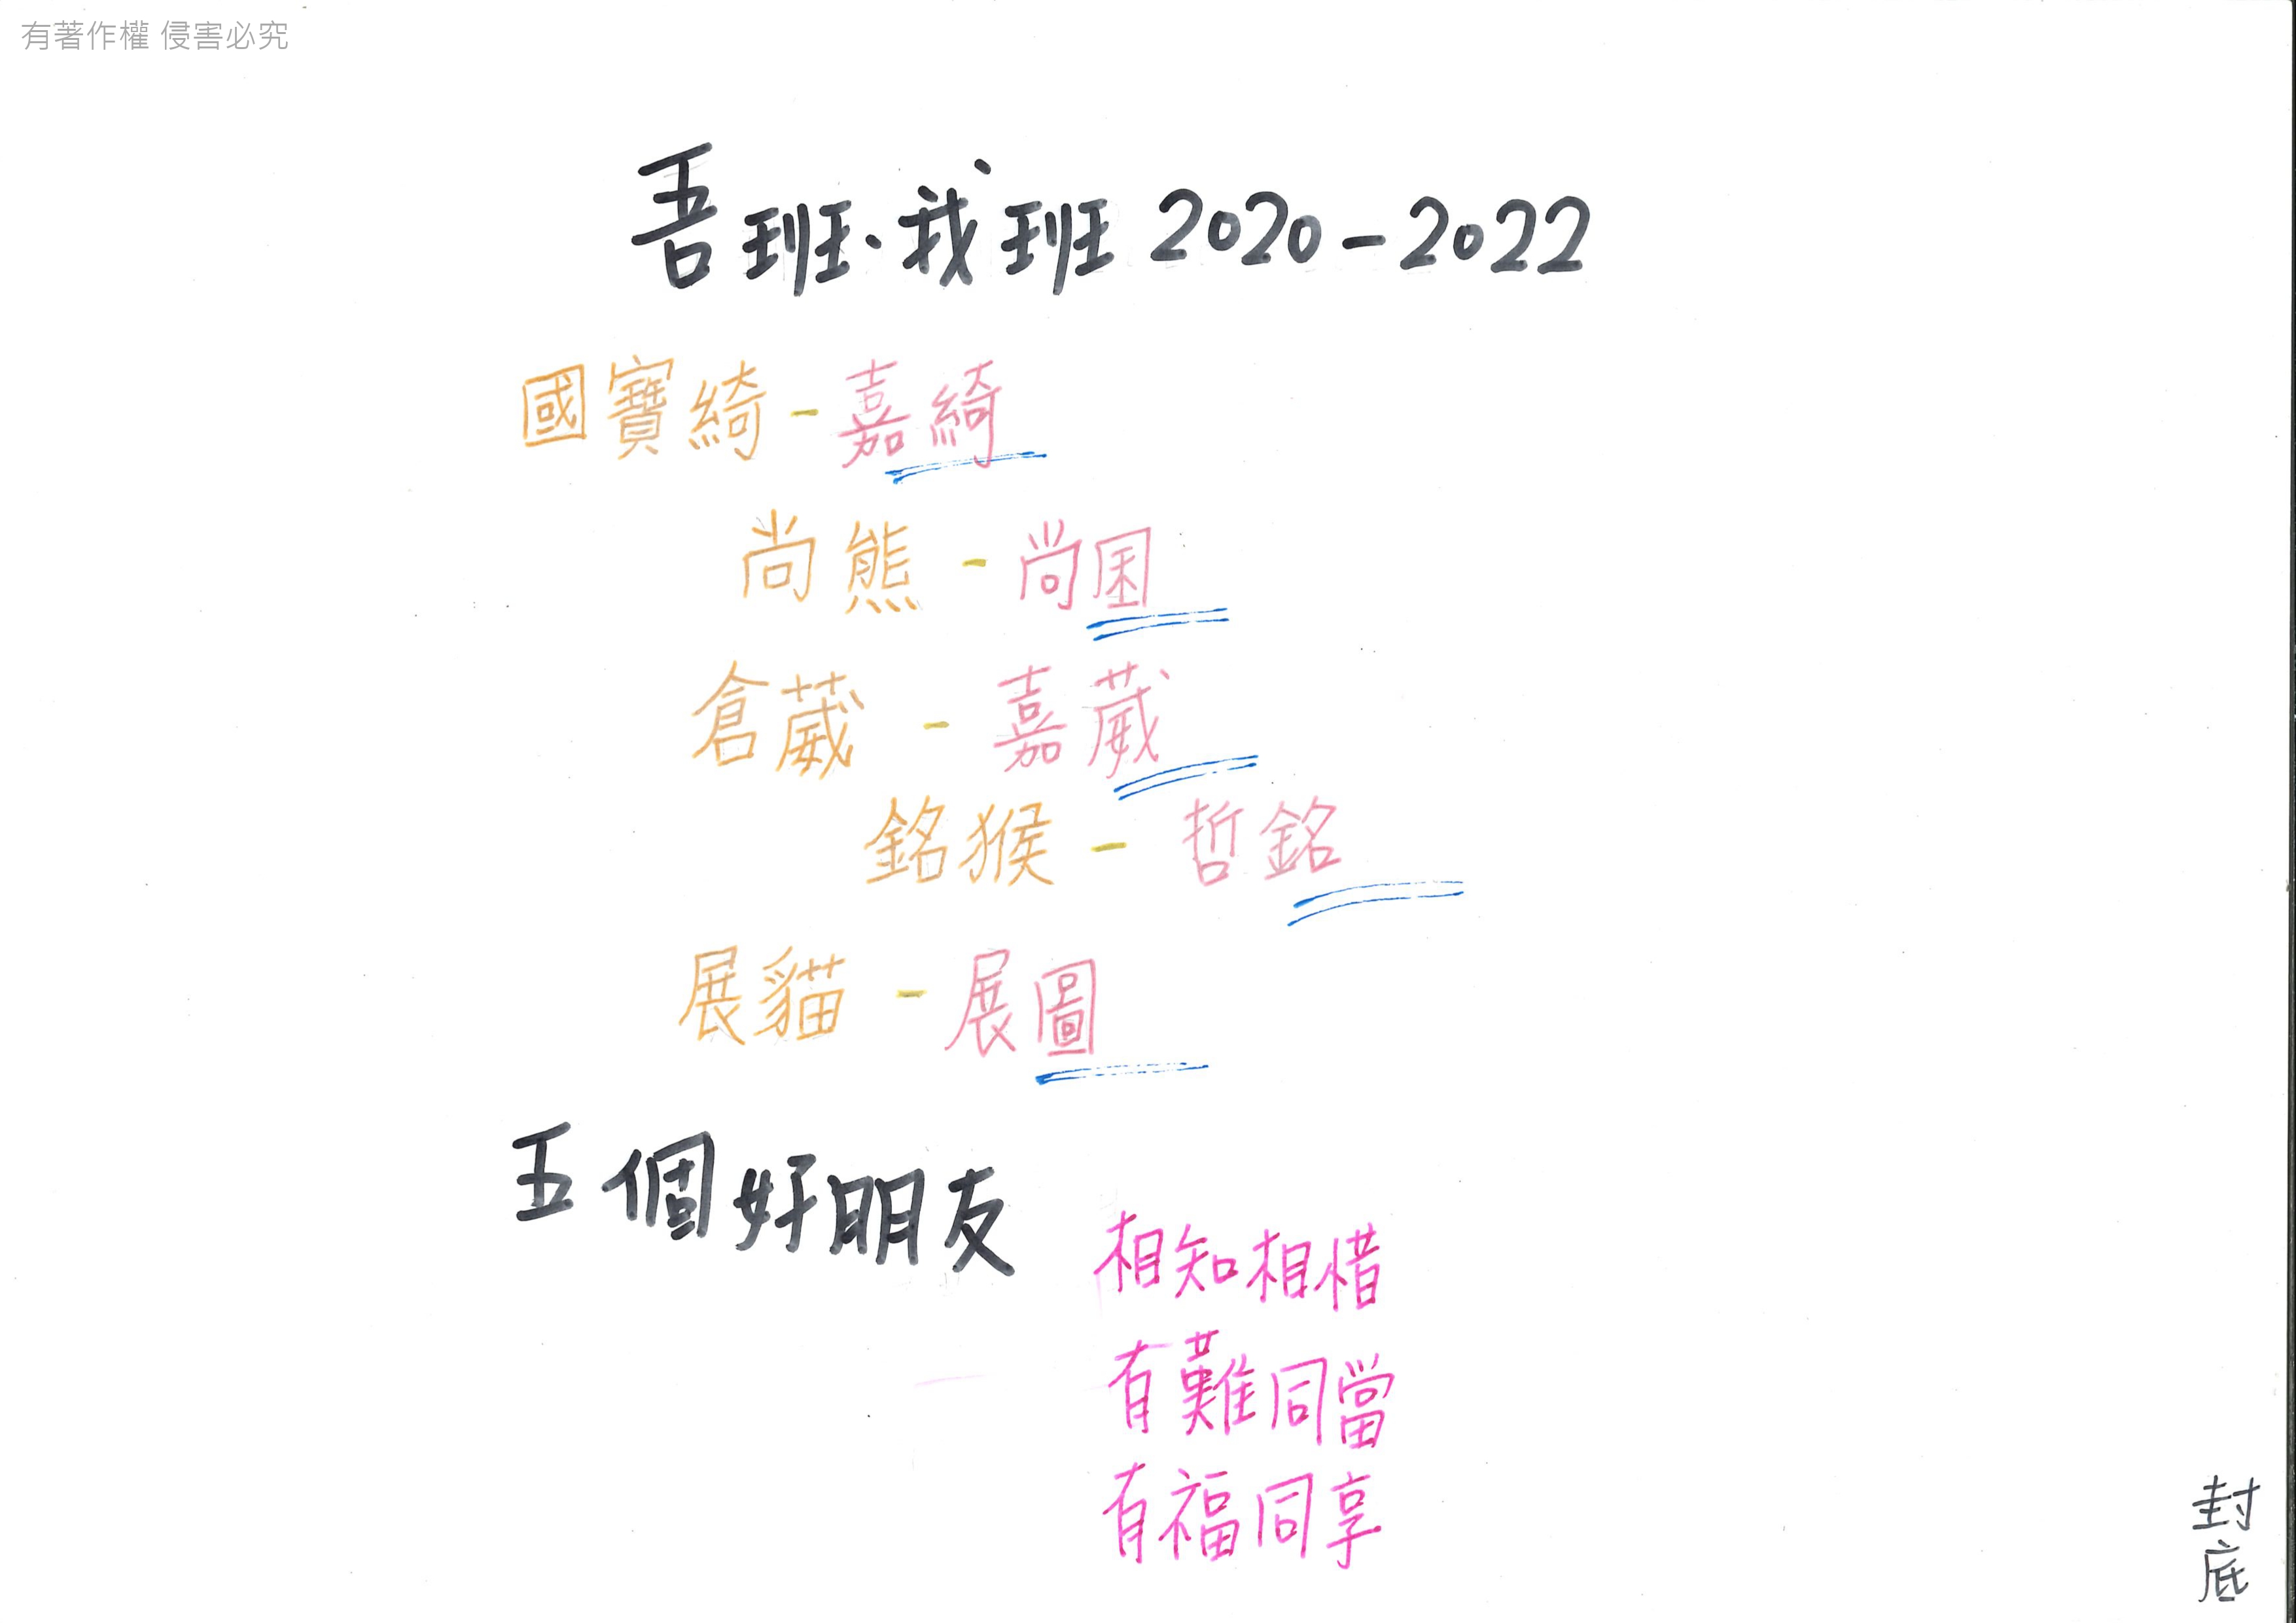 有著作權 侵害必究
吾班.我班2020-2022
國寶綺-嘉綺
尚熊-尚困
倉葳-嘉葳
銘猴-哲銘
展貓-展圖
五個好朋友
相知相惜
有難同當
有福同享
封底